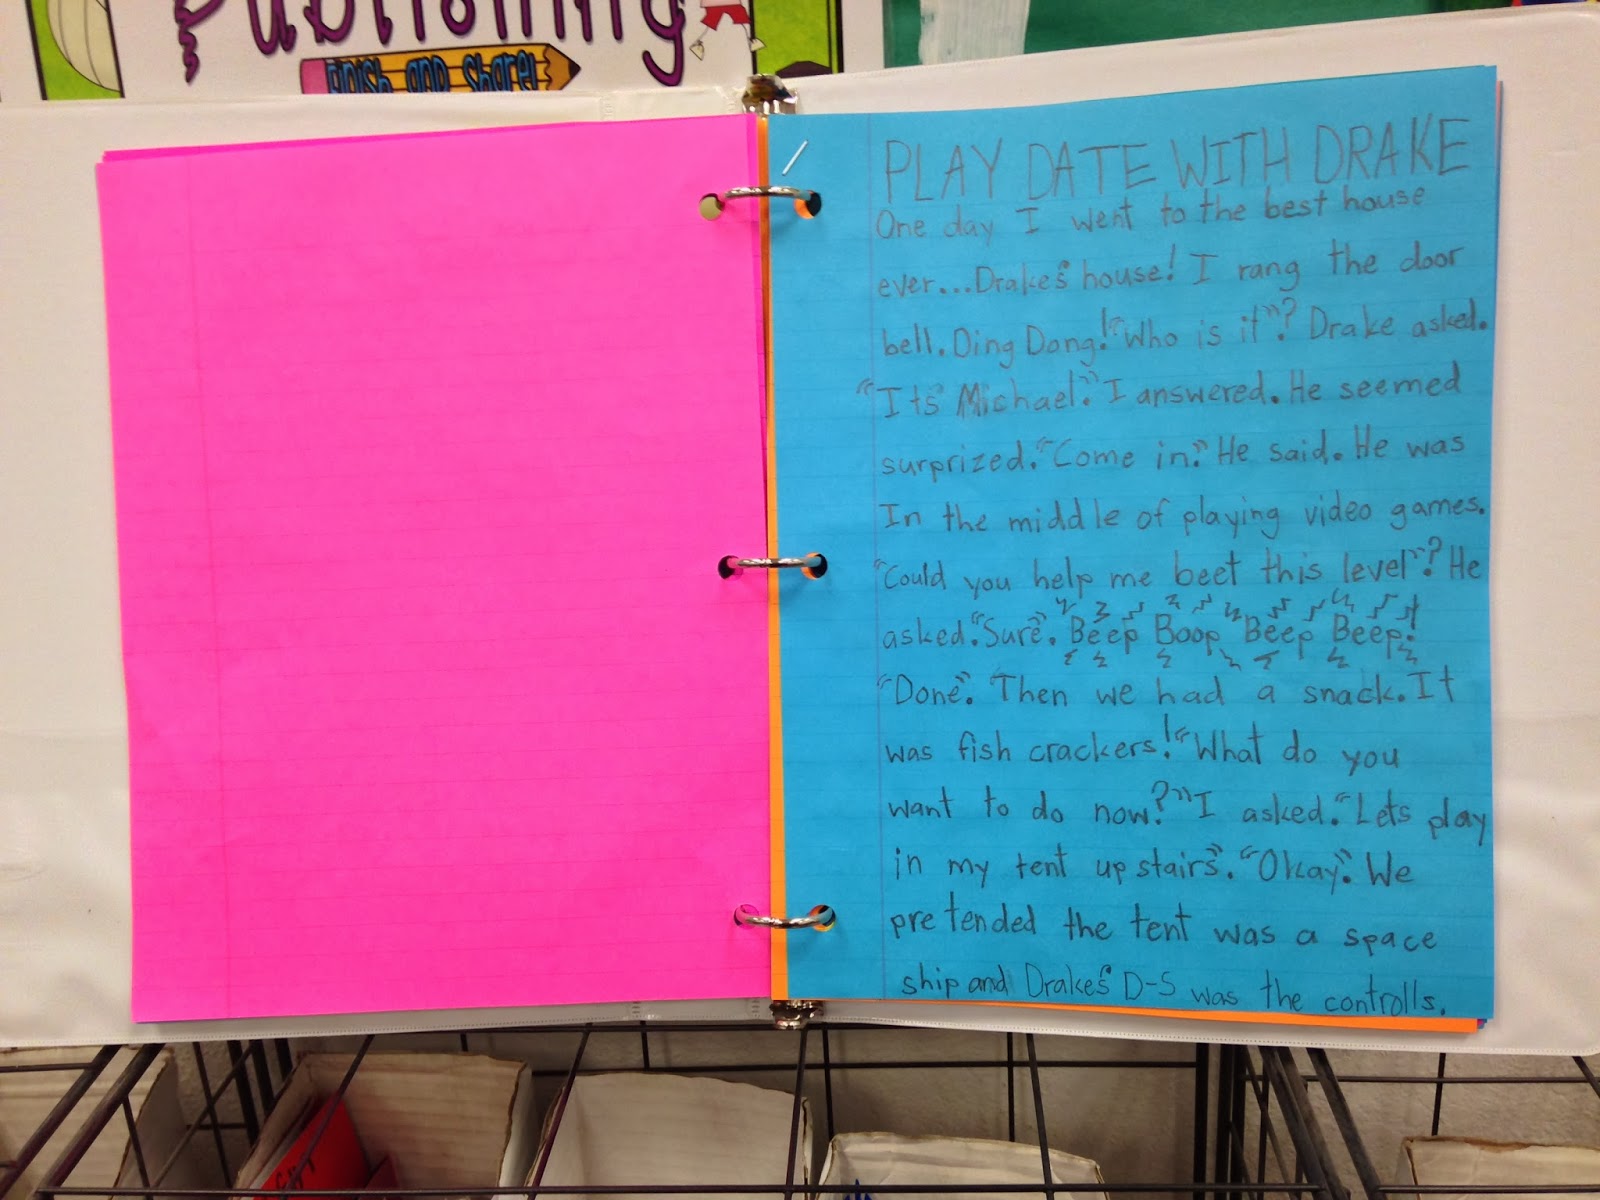 Publishing
Finish and share!
PLAY DATE WITH DRAKE
One day I went to the best house
ever...Drake's house! I rang the door
bell. Ding Dong! "Who is it"? Drake asked.
"It's Michael." I answered. He seemed
surprized. "Come in." He said. He was
In the middle of playing video games.
"Could you help me beet this level"? He
asked. "Sure". Beep Boop Beep Beep!
"Done". Then we had a snack. It
was fish crackers! "What do you
want to do now?" I asked. "Lets play
in my tent up stairs". "Okay". We
pretended the tent was a space
ship and Drake's D-S was the controlls.